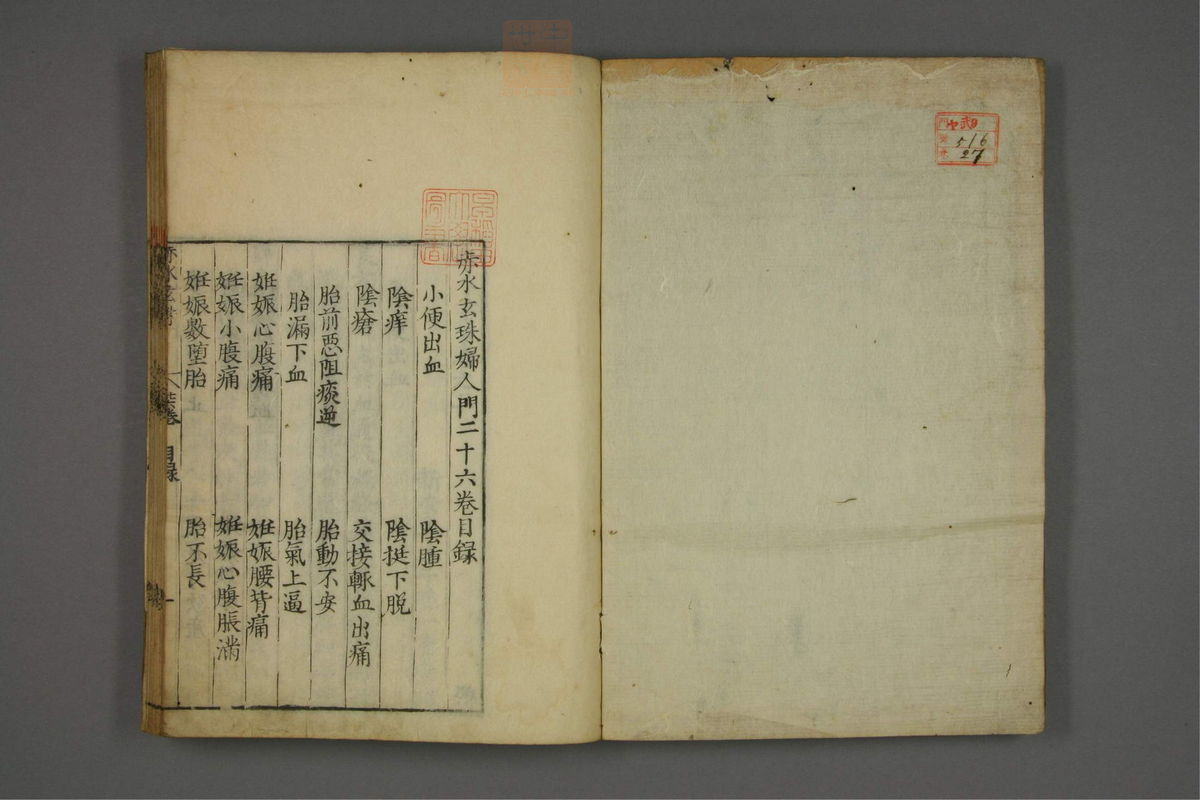 赤水玄珠婦人門二十六卷目錄
小便出血
陰腫
陰痒
陰挺下脫
陰瘡
交接輒血出痛
胎前惡阻痰逆
胎動不安
胎漏下血
胎氣上逼
姙娠心腹痛
姙娠腰背痛
姙娠小腹痛
姙娠心腹脹滿
姙娠數墮胎
胎不長
目錄
一
516
27